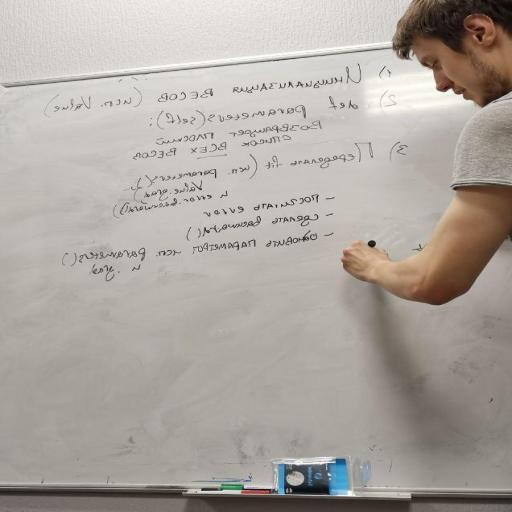 1) Инициализация ВЕСОВ (исп. Value)
2) def parameters(self):
Возвращает плоский
список ВСЕХ ВЕСОВ
3) Переделать fit (исп. parameters(),
Value.grad
и error.backward())
– посчитать error
– сделать backward()
– обновить параметры исп. parameters()
и .grad